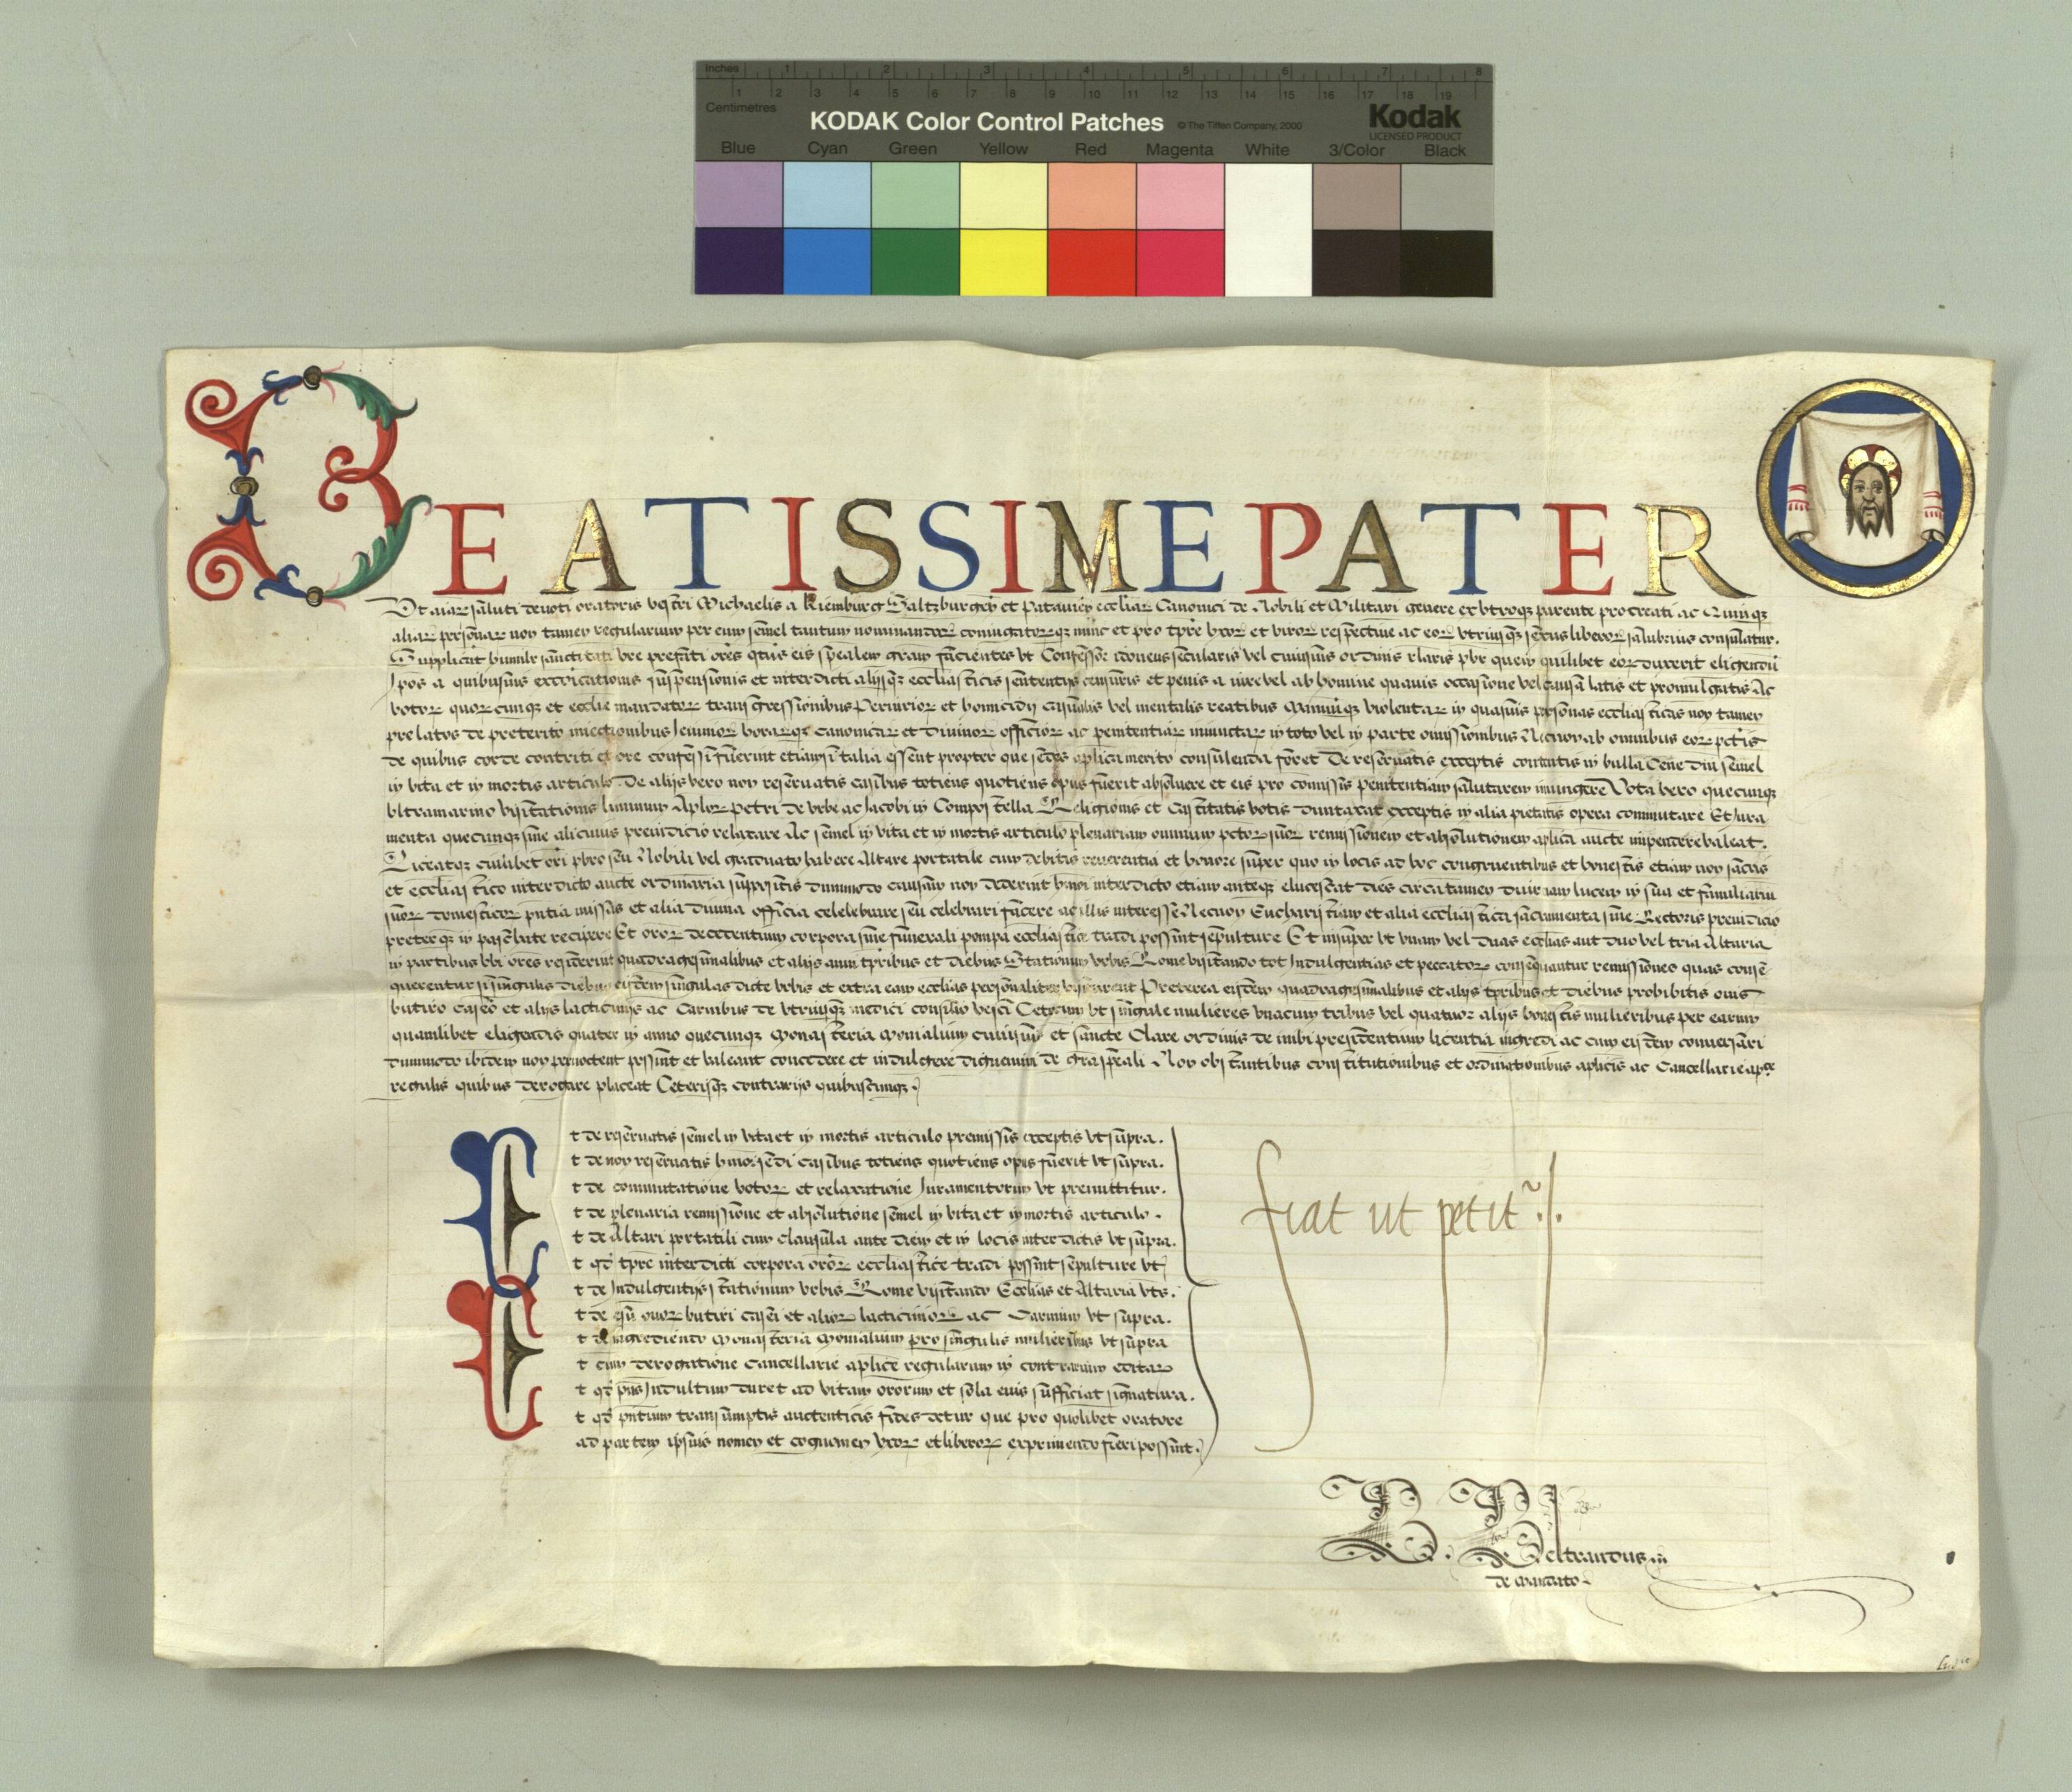 Inches 1 2 3 4 5 6 7 8
1 2 3 4 5 6 7 8 9 10 11 12 13 14 15 16 17 18 19
Centimetres
KODAK Color Control Patches © The Tiffen Company, 2000 Kodak
LICENSED PRODUCT
Blue Cyan Green Yellow Red Magenta White 3/Color Black
BEATISSIME PATER
Ut aīar saluti devoti oratoris vestri Michaelis a Kiemburg Saltzburgeñ et Patavieñ eccliar Canonici de Nobili et Militari genere ex utroqz parente procreati ac Quinqz
aliar personar non tamen regularium per eum semel tantum nominandor coniugatorqz nunc et pro tpre uxor et viror respective ac eor utriusqz sexus liberor salubrius consulatur.
Supplicat humilr sanctitati vre prefati ores qtus eis spealem gram facientes ut Confessor idoneus secularis vel cuiusvis ordinis rlaris pbr quem quilibet eor duxerit eligendu
Ipos a quibusvis excoicationis suspensionis et interdicti alijsqz ecclasticis sententijs censuris et penis a iure vel ab homine quavis occasione vel causa latis et promulgatis Ac
votor quorcunqz et ecclie mandator transgressionibus Periurior et homicidij casualis vel mentalis reatibus Manuuqz violentar in quasvis personas ecclasticas non tamen
prelatos de preterito iniectionibus Ieiunior horarqz canonicar et divinor officior ac penitentiar iniunctar in toto vel in parte omissionibus Necnon ab omnibus eor pctis
de quibus corde contriti et ore confessi fuerint etiam si talia essent propter que sedes aplica merito consulenda foret De reservatis exceptis contentis in bulla Cene dni semel
in vita et in mortis articulo De alijs vero non reservatis casibus totiens quotiens opus fuerit absolvere et eis pro comissis penitentiam salutarem iniungere Vota vero quecunqz
ultramarino visitationis liminum Aplor Petri de Urbe ac Jacobi in Compostella Religionis et Castitatis votis duntaxat exceptis in alia pietatis opera commutare Et Iura
menta quecunqz sine alicuius preiudicio relaxare Ac semel in vita et in mortis articulo plenariam omnium pctor suor remissionem et absolutionem aplica aucte impendere valeat.
Liceatqz cuilibet ori pbro seu Nobili vel graduato habere Altare portatile cum debitis reverentia et honore super quo in locis ad hoc congruentibus et honestis etiam non sacris
et ecclastico interdicto aucte ordinaria suppositis dummodo causam non dederint hmoi interdicto etiam anteqz elucescat dies circa tamen diurnam lucem in sua et familiariu
suor domesticor pntia missas et alia divina officia celelebrare seu celebrari facere ac illis interesse Necnon Eucharistiam et alia ecclastica sacramenta sine Rectoris preiudicio
preterqz in pascahte recipere Et oror decedentium corpora sine funerali pompa ecclastice tradi possint sepulture Et insuper ut unam vel duas ecclias aut duo vel tria Altaria
in partibus ubi ores resederint quadragesimalibus et alijs anni tpribus et diebus Stationum Urbis Rome visitando tot Indulgentias et peccator consequantur remissiones quas conse
querentur si singulis diebus eisdem singulas dicte Urbis et extra eam ecclias personaliter visitarent Preterea eisdem quadragesimalibus et alijs tpribus et diebus prohibitis ovis
butiro caseo et alijs lacticinijs ac Carnibus de utriusqz medici consilio vesci Ceterum ut singule mulieres unacum tribus vel quatuor alijs honestis mulieribus per earum
quamlibet eligendis quater in anno quecunqz Monasteria Monialium cuiusvis et sancte Clare ordinis de inibi presidentium licentia ingredi ac cum eisdem conversari
dummodo ibidem non pernoctent possint et valeant concedere et indulgere dignemini de gra speali Non obstantibus constitutionibus et ordinationibus aplicis ac Cancellarie aplce
regulis quibus derogare placeat Ceterisqz contrarijs quibuscunqz.
Et de reservatis semel in vita et in mortis articulo premissis exceptis ut supra.
t de non reservatis hmoi sedi casibus totiens quotiens opus fuerit ut supra.
t de commutatione votor et relaxatione Iuramentorum ut premittitur.
t de plenaria remissione et absolutione semel in vita et in mortis articulo.
t de Altari portatili cum clausula ante diem et in locis interdictis ut supra.
t qd tpre interdicti corpora oror ecclastice tradi possint sepulture ut s
t de Indulgentijs stationum Urbis Rome visitando Ecclias et Altaria uts.
t de esu ovor butiri casei et alior lacticinior ac Carnium ut supra.
t de ingrediendo Monasteria Monialium pro singulis mulieribus ut supra
t cum derogatione Cancellarie aplice regularum in contrarium editar
t qd pns Indultum duret ad vitam ororum et sola eius sufficiat signatura.
t qd pntium transumptis auctenticis fides detur que pro quolibet oratore
ad partem ipsius nomen et cognomen uxor et liberor exprimendo fieri possint.
fiat ut petit̃ .f.
Beltrandus
de mandato.